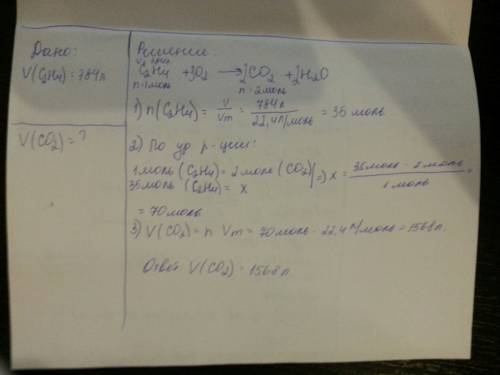 Дано:
V(C2H4) = 784 л
V(CO2) = ?
Решение:
C2H4 + 3O2 → 2CO2 + 2H2O
n = 1 моль n = 2 моль
1) n(C2H4) = V/Vm = 784 л / 22,4 л/моль = 35 моль
2) По ур р-ции:
1 моль (C2H4) = 2 моль (CO2)
35 моль (C2H4) = x
=> x = 35 моль · 2 моль / 1 моль =
= 70 моль
3) V(CO2) = n Vm = 70 моль · 22,4 л/моль = 1568 л.
Ответ: V(CO2) = 1568 л